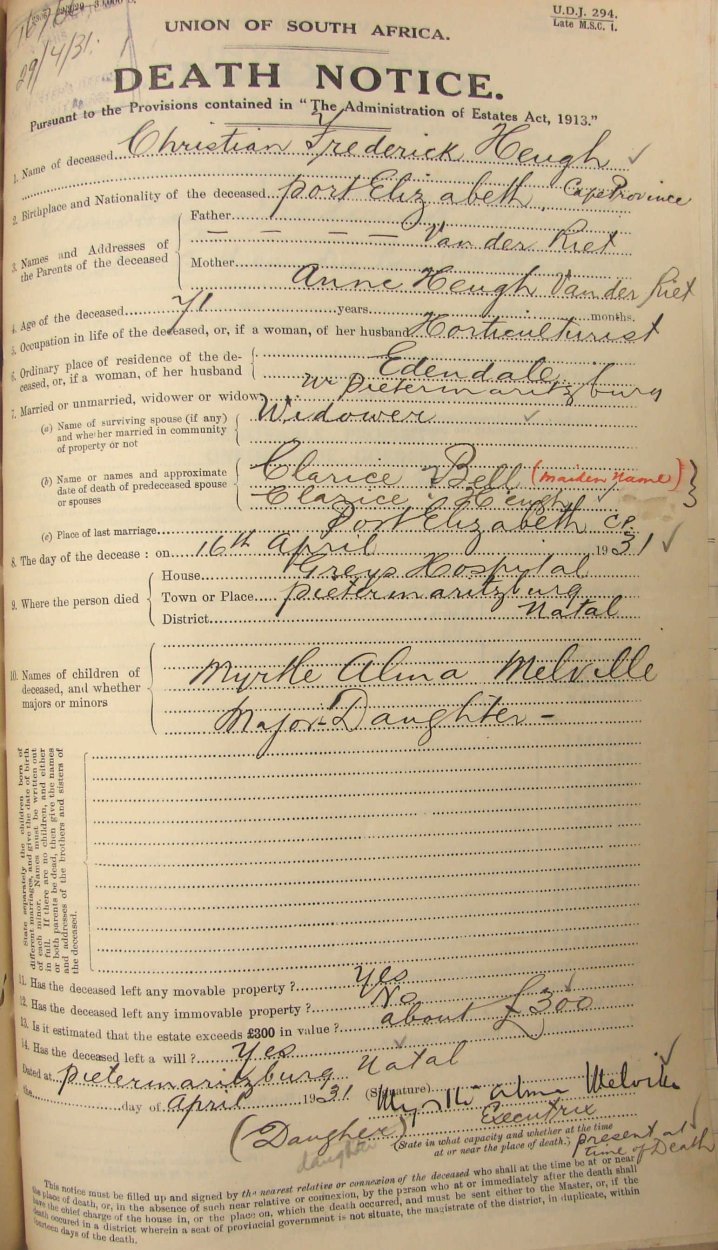 U.D.J. 294.
Late M.S.C. 1.
29/4/31.
UNION OF SOUTH AFRICA.
DEATH NOTICE.
Pursuant to the Provisions contained in "The Administration of Estates Act, 1913."
1. Name of deceased Christian Frederick Heugh ✓
2. Birthplace and Nationality of the deceased Port Elizabeth, Cape Province
3. Names and Addresses of the Parents of the deceased
Father
— — — — Van der Riet
Mother
Anne Heugh Van der Riet
4. Age of the deceased 71 years months.
5. Occupation in life of the deceased, or, if a woman, of her husband Horticulturist
6. Ordinary place of residence of the deceased, or, if a woman, of her husband
Edendale
Nr Pietermaritzburg
7. Married or unmarried, widower or widow
Widower ✓
(a) Name of surviving spouse (if any)
and whether married in community
of property or not
(b) Name or names and approximate
date of death of predeceased spouse
or spouses
Clarice Bell (maiden name)
Clarice Heugh
(c) Place of last marriage Port Elizabeth C.P.
8. The day of the decease : on 16th April 1931 ✓
9. Where the person died
House Greys Hospital
Town or Place Pietermaritzburg
District Natal
10. Names of children of
deceased, and whether
majors or minors
Myrtle Alma Melville
Major - Daughter -
State separately the children born of
different marriages, and give the date of birth
of each minor. Names must be written out
in full. If there are no children, and either
or both parents be dead, then give the names
and addresses of the brothers and sisters of
the deceased.
11. Has the deceased left any movable property ? Yes
12. Has the deceased left any immovable property ? No
13. Is it estimated that the estate exceeds £300 in value ? about £300
14. Has the deceased left a will ? Yes
Dated at Pietermaritzburg Natal
the day of April 1931 (Signature) Myrtle Alma Melville
Executrix
(Daughter)
daughter
(State in what capacity and whether at the time
at or near the place of death.) present at
time of Death
This notice must be filled up and signed by the nearest relative or connexion of the deceased who shall at the time be at or near
the place of death, or, in the absence of such near relative or connexion, by the person who at or immediately after the death shall
have the chief charge of the house in, or the place on, which the death occurred, and must be sent either to the Master, or, if the
death occured in a district wherein a seat of provincial government is not situate, the magistrate of the district, in duplicate, within
fourteen days of the death.